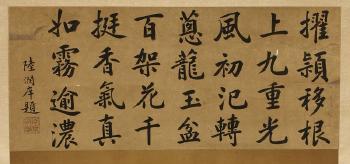 擢穎移根
上九重光
風初氾轉
蔥蘢玉盆
百架花千
挺香氣真
如霧逾濃
陸潤庠題